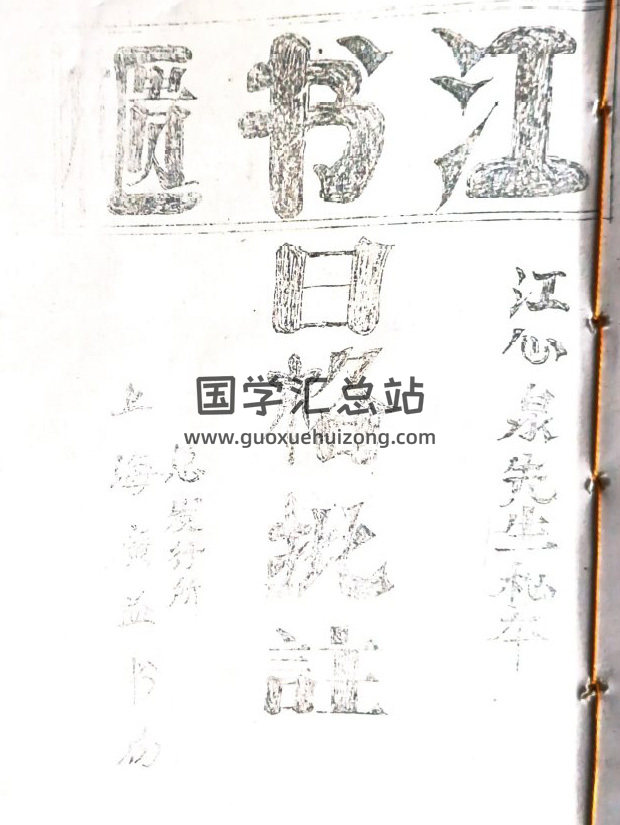 江书匮
江心泉先生私本
日格批註
总发行所
上海益书局
国学汇总站
www.guoxuehuizong.com